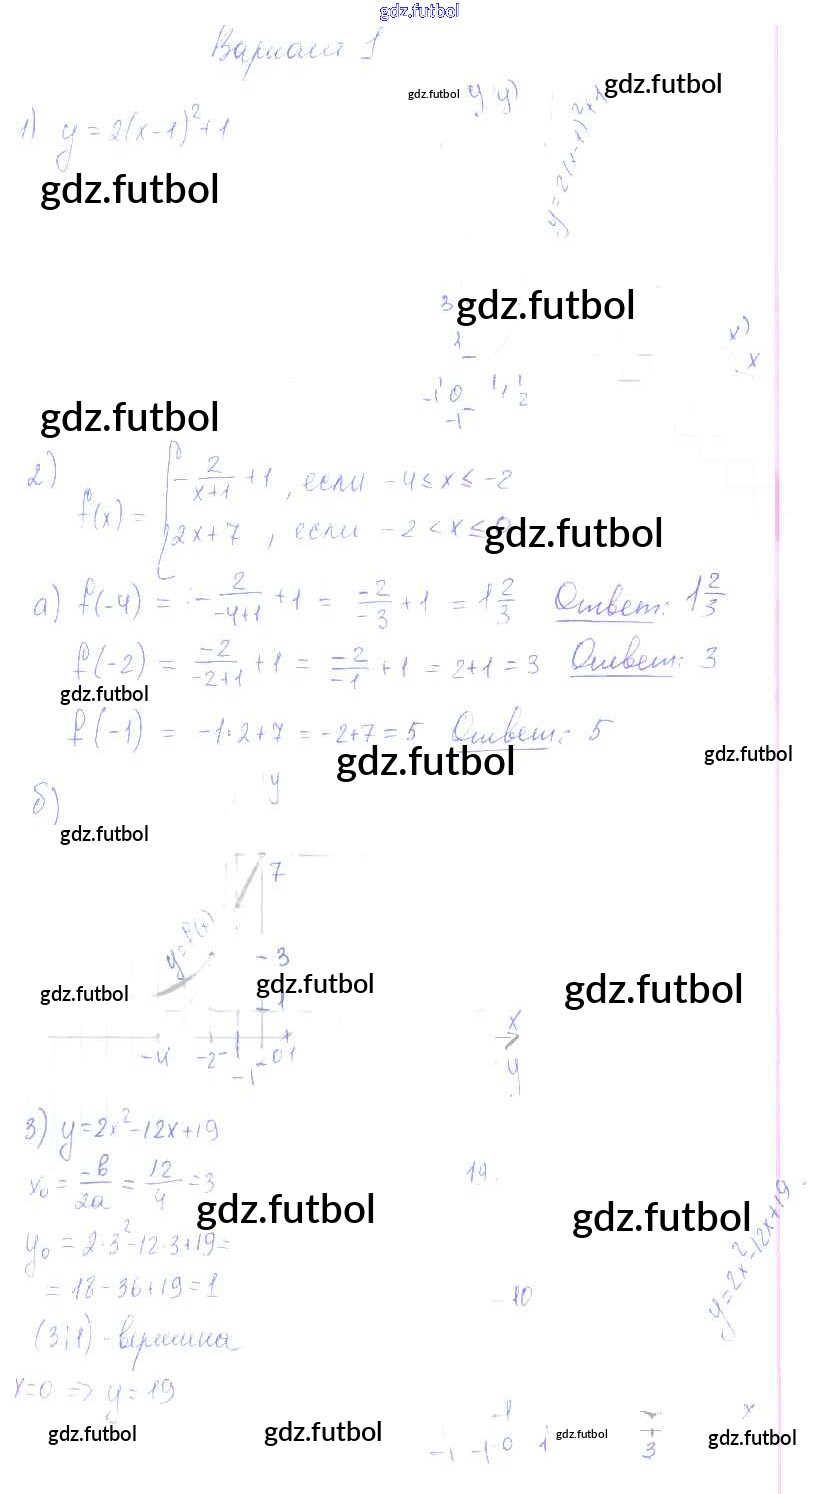 gdz.futbol
Вариант 1
gdz.futbol
gdz.futbol
y
y)
1) y = 2(x-1)²+1
y = 2(x-1)²+1
gdz.futbol
3
gdz.futbol
1
x)
x
-1 0 1, 1 2
-1
gdz.futbol
2) f(x) = { -2/(x+1) + 1, если -4 ≤ x ≤ -2
2x+7, если -2 < x ≤ 0
gdz.futbol
а) f(-4) = -2/(-4+1) + 1 = -2/-3 + 1 = 1 2/3 Ответ: 1 2/3
f(-2) = -2/(-2+1) + 1 = -2/-1 + 1 = 2+1 = 3 Ответ: 3
gdz.futbol
f(-1) = -1·2+7 = -2+7 = 5 Ответ: 5
gdz.futbol
gdz.futbol
б)
y
gdz.futbol
7
y=f(x)
3
gdz.futbol
gdz.futbol
gdz.futbol
1
x
-4 -2 -1 0 1
y
3) y=2x²-12x+19
x₀ = -b/2a = 12/4 = 3
19
gdz.futbol
gdz.futbol
y=2x²-12x+19
y₀ = 2·3²-12·3+19=
= 18-36+19=1
10
(3;1) - вершина
x=0 => y=19
1
x
gdz.futbol
gdz.futbol
-1 -1 0 1
gdz.futbol
3
gdz.futbol